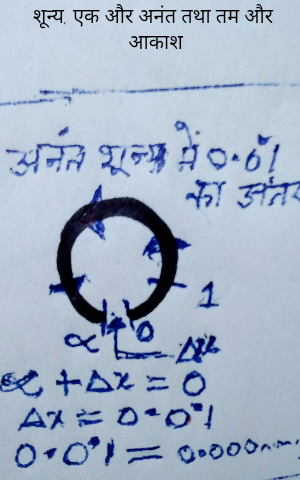 शून्य, एक और अनंत तथा तम और
आकाश
अनंत शून्य में 0.0°1
का अंतर
1
∝ 0
Δx
∝ + Δx = 0
Δx = 0.0°1
0.0°1 = 0.000